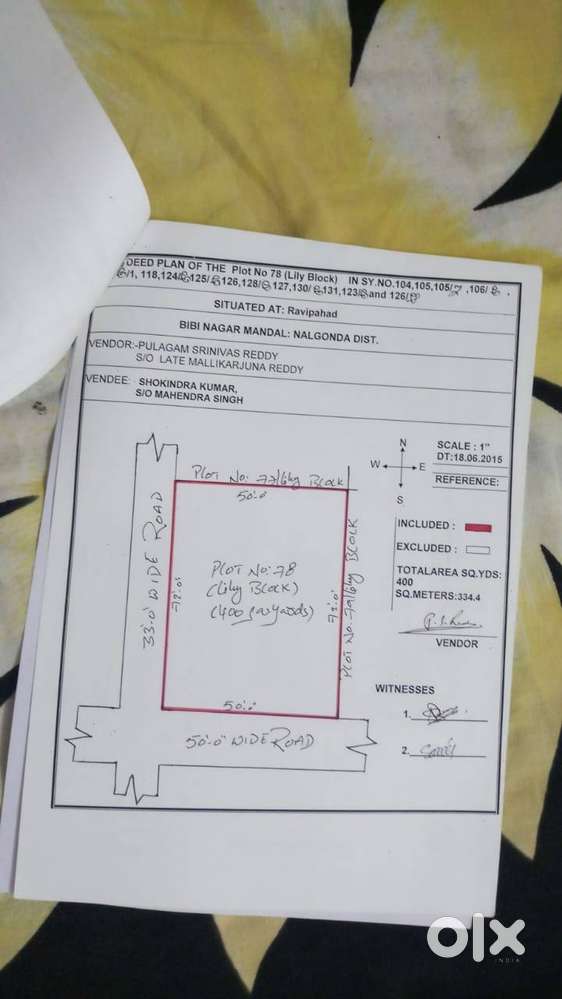 DEED PLAN OF THE Plot No 78 (Lily Block) IN SY.NO.104,105,105/ ,106/ ,
/1, 118,124/ 125/ 126,128/ 127,130/ 131,123/ and 126/
SITUATED AT: Ravipahad
BIBI NAGAR MANDAL: NALGONDA DIST.
VENDOR:-PULAGAM SRINIVAS REDDY
S/O LATE MALLIKARJUNA REDDY
VENDEE: SHOKINDRA KUMAR,
S/O MAHENDRA SINGH
N
W E
S
SCALE : 1"
DT:18.06.2015
REFERENCE:
PLOT No: 77/ BLOCK
50'.0"
33'.0" WIDE ROAD
72'.0"
PLOT No:78
(Lily BLOCK)
(400 )
72'.0"
PLOT No: 79/ BLOCK
50'.0"
50'.0" WIDE ROAD
INCLUDED :
EXCLUDED :
TOTALAREA SQ.YDS:
400
SQ.METERS:334.4
VENDOR
WITNESSES
1.
2.
olx
INDIA